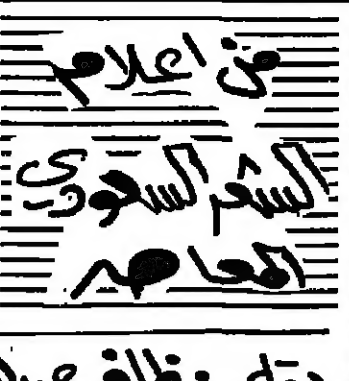 من اعلام
الشعر السعودي
المعاصر
بقلم: